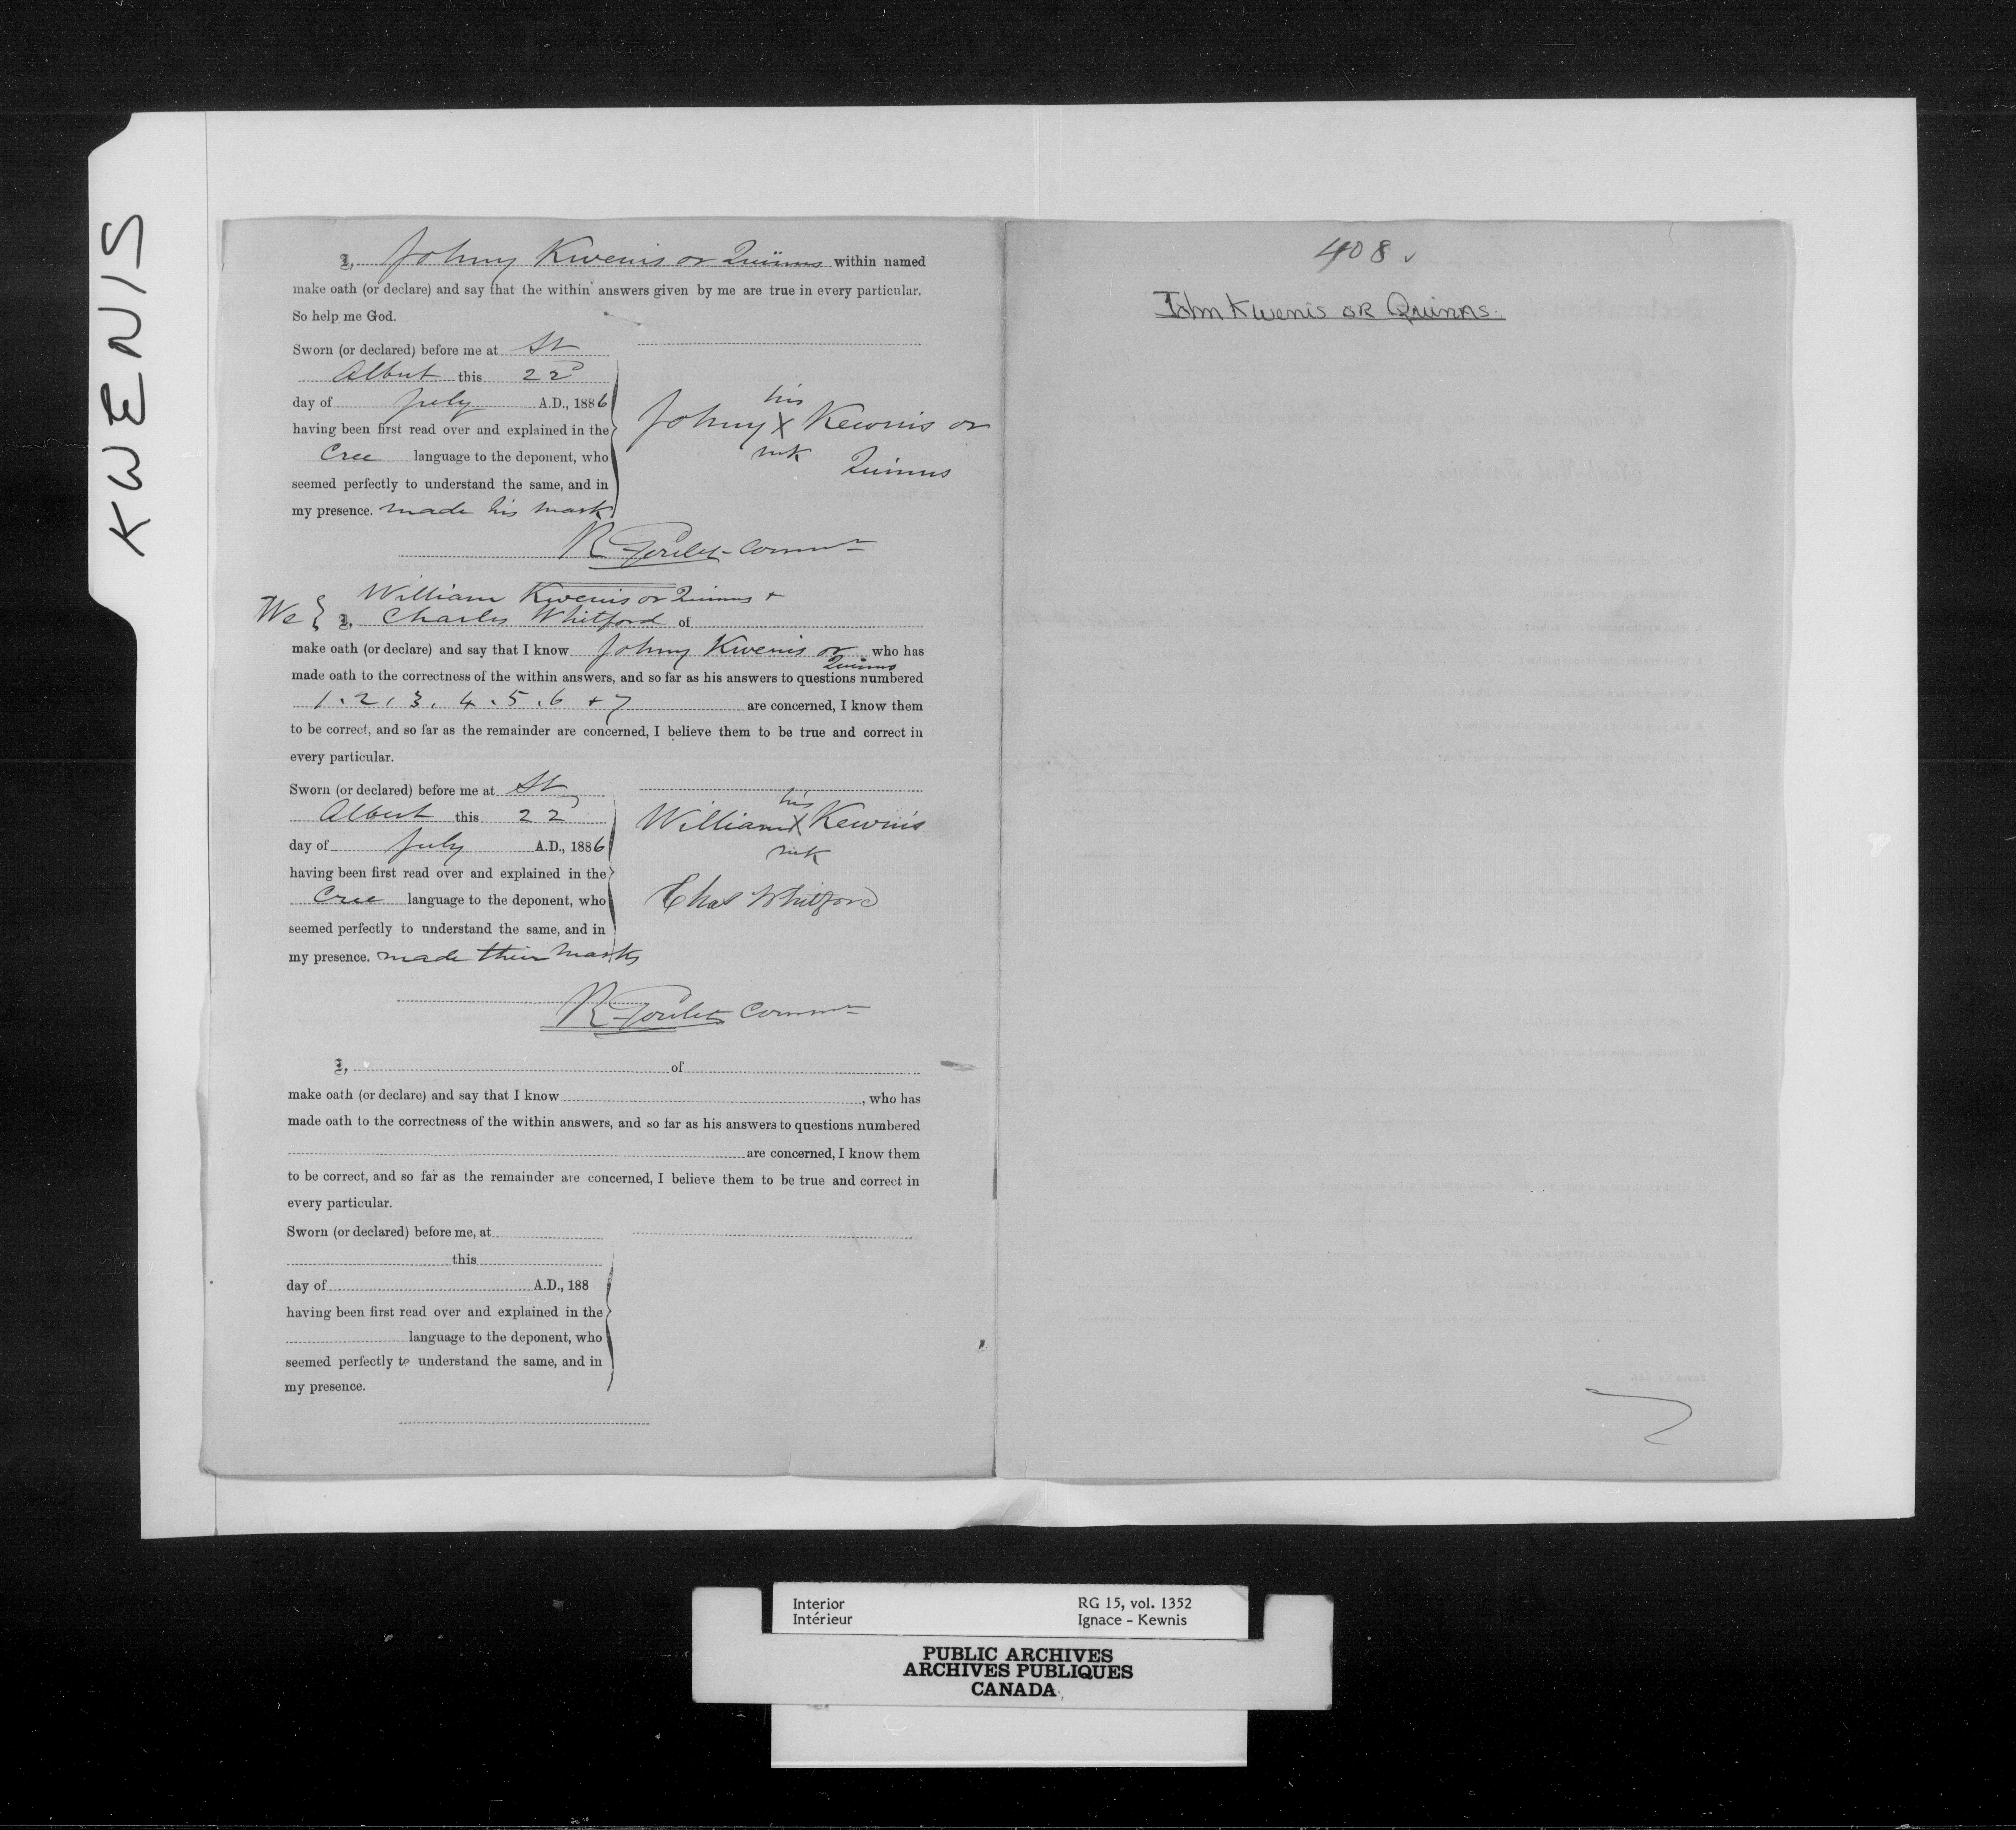 KWENIS
I, Johny Kwenis or Quinns within named
make oath (or declare) and say that the within answers given by me are true in every particular.
So help me God.
Sworn (or declared) before me at St
Albert this 22d
day of July A.D., 1886
having been first read over and explained in the
Cree language to the deponent, who
seemed perfectly to understand the same, and in
my presence. made his mark
his
Johny X Kewnis or
mk Quinns
R Goulet Commr
William Kwenis or Quinns +
We { I, Charles Whitford of
make oath (or declare) and say that I know Johny Kwenis or Quinns who has
made oath to the correctness of the within answers, and so far as his answers to questions numbered
1. 2, 3, 4. 5. 6 + 7 are concerned, I know them
to be correct, and so far as the remainder are concerned, I believe them to be true and correct in
every particular.
Sworn (or declared) before me at St
Albert this 22
day of July A.D., 1886
having been first read over and explained in the
Cree language to the deponent, who
seemed perfectly to understand the same, and in
my presence. made their marks
his
William X Kewnis
mk
Chas Whitford
R Goulet Commr
I, of
make oath (or declare) and say that I know , who has
made oath to the correctness of the within answers, and so far as his answers to questions numbered
are concerned, I know them
to be correct, and so far as the remainder are concerned, I believe them to be true and correct in
every particular.
Sworn (or declared) before me, at
this
day of A.D., 188
having been first read over and explained in the
language to the deponent, who
seemed perfectly to understand the same, and in
my presence.
408
John Kwenis OR Quinns.
Interior RG 15, vol. 1352
Intérieur Ignace - Kewnis
PUBLIC ARCHIVES
ARCHIVES PUBLIQUES
CANADA